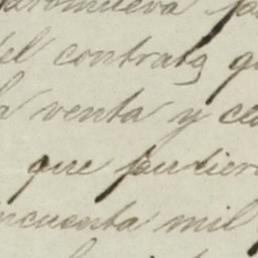 promueva
del contrato
venta y
que pudier
ncuenta mil